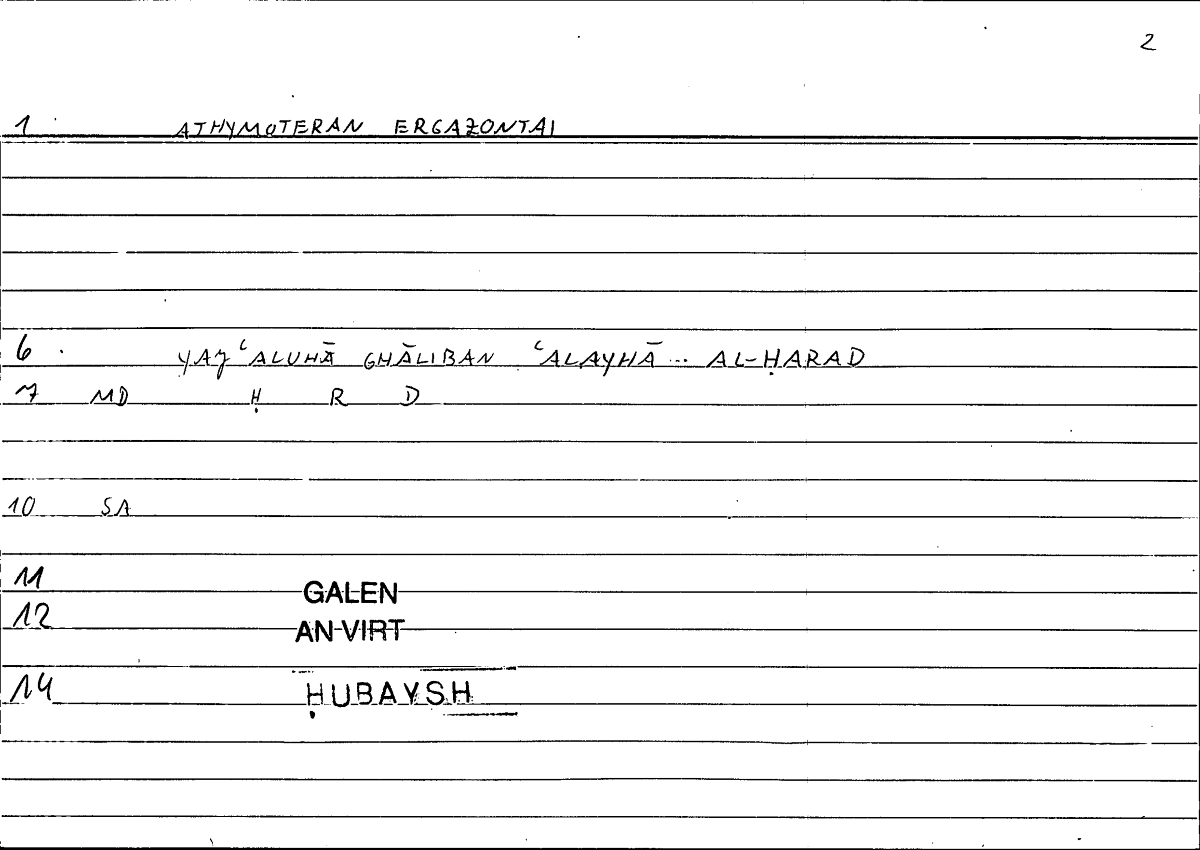 2
1 ATHYMOTERAN ERGAZONTAI
6 YAJʿALUHĀ GHĀLIBAN ʿALAYHĀ ... AL-ḤARAD
7 MD Ḥ R D
10 SA
11 GALEN
12 AN VIRT
14 ḤUBAYSH